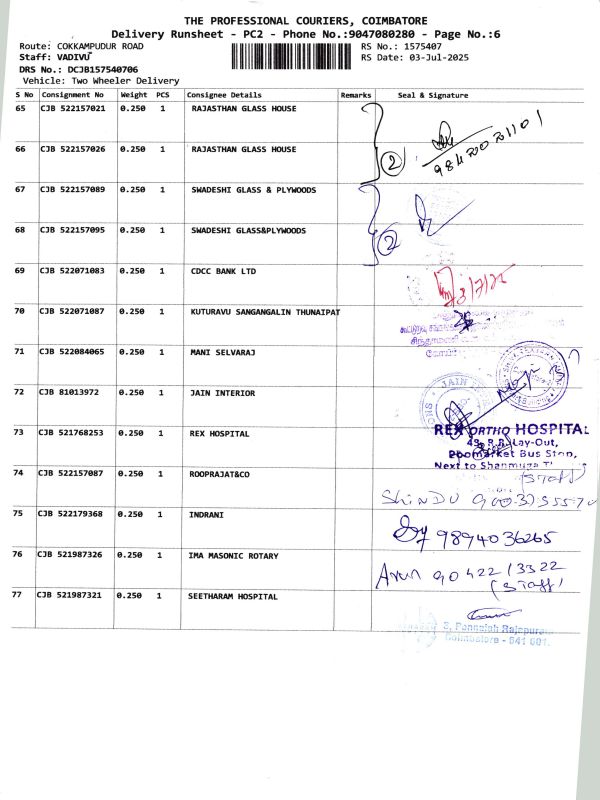 THE PROFESSIONAL COURIERS, COIMBATORE
Delivery Runsheet - PC2 - Phone No.:9047080280 - Page No.:6
Route: COKKAMPUDUR ROAD
RS No.: 1575407
Staff: VADIVU
RS Date: 03-Jul-2025
DRS No.: DCJB157540706
Vehicle: Two Wheeler Delivery
S No Consignment No Weight PCS Consignee Details Remarks Seal & Signature
65 CJB 522157021 0.250 1 RAJASTHAN GLASS HOUSE
66 CJB 522157026 0.250 1 RAJASTHAN GLASS HOUSE
2
67 CJB 522157089 0.250 1 SWADESHI GLASS & PLYWOODS
68 CJB 522157095 0.250 1 SWADESHI GLASS&PLYWOODS
2
69 CJB 522071083 0.250 1 CDCC BANK LTD
70 CJB 522071087 0.250 1 KUTURAVU SANGANGALIN THUNAIPAT
71 CJB 522084065 0.250 1 MANI SELVARAJ
72 CJB 81013972 0.250 1 JAIN INTERIOR
JAIN
73 CJB 521768253 0.250 1 REX HOSPITAL
REX ORTHO HOSPITAL
Poomarket Bus Stop,
Next to Shanmuga
74 CJB 522157087 0.250 1 ROOPRAJAT&CO
(STAFF)
SHINDU
75 CJB 522179368 0.250 1 INDRANI
9894036265
76 CJB 521987326 0.250 1 IMA MASONIC ROTARY
Arun 90422 13322
(STAFF)
77 CJB 521987321 0.250 1 SEETHARAM HOSPITAL
3, Ponnaiah Rajapuram
Coimbatore - 641 001.